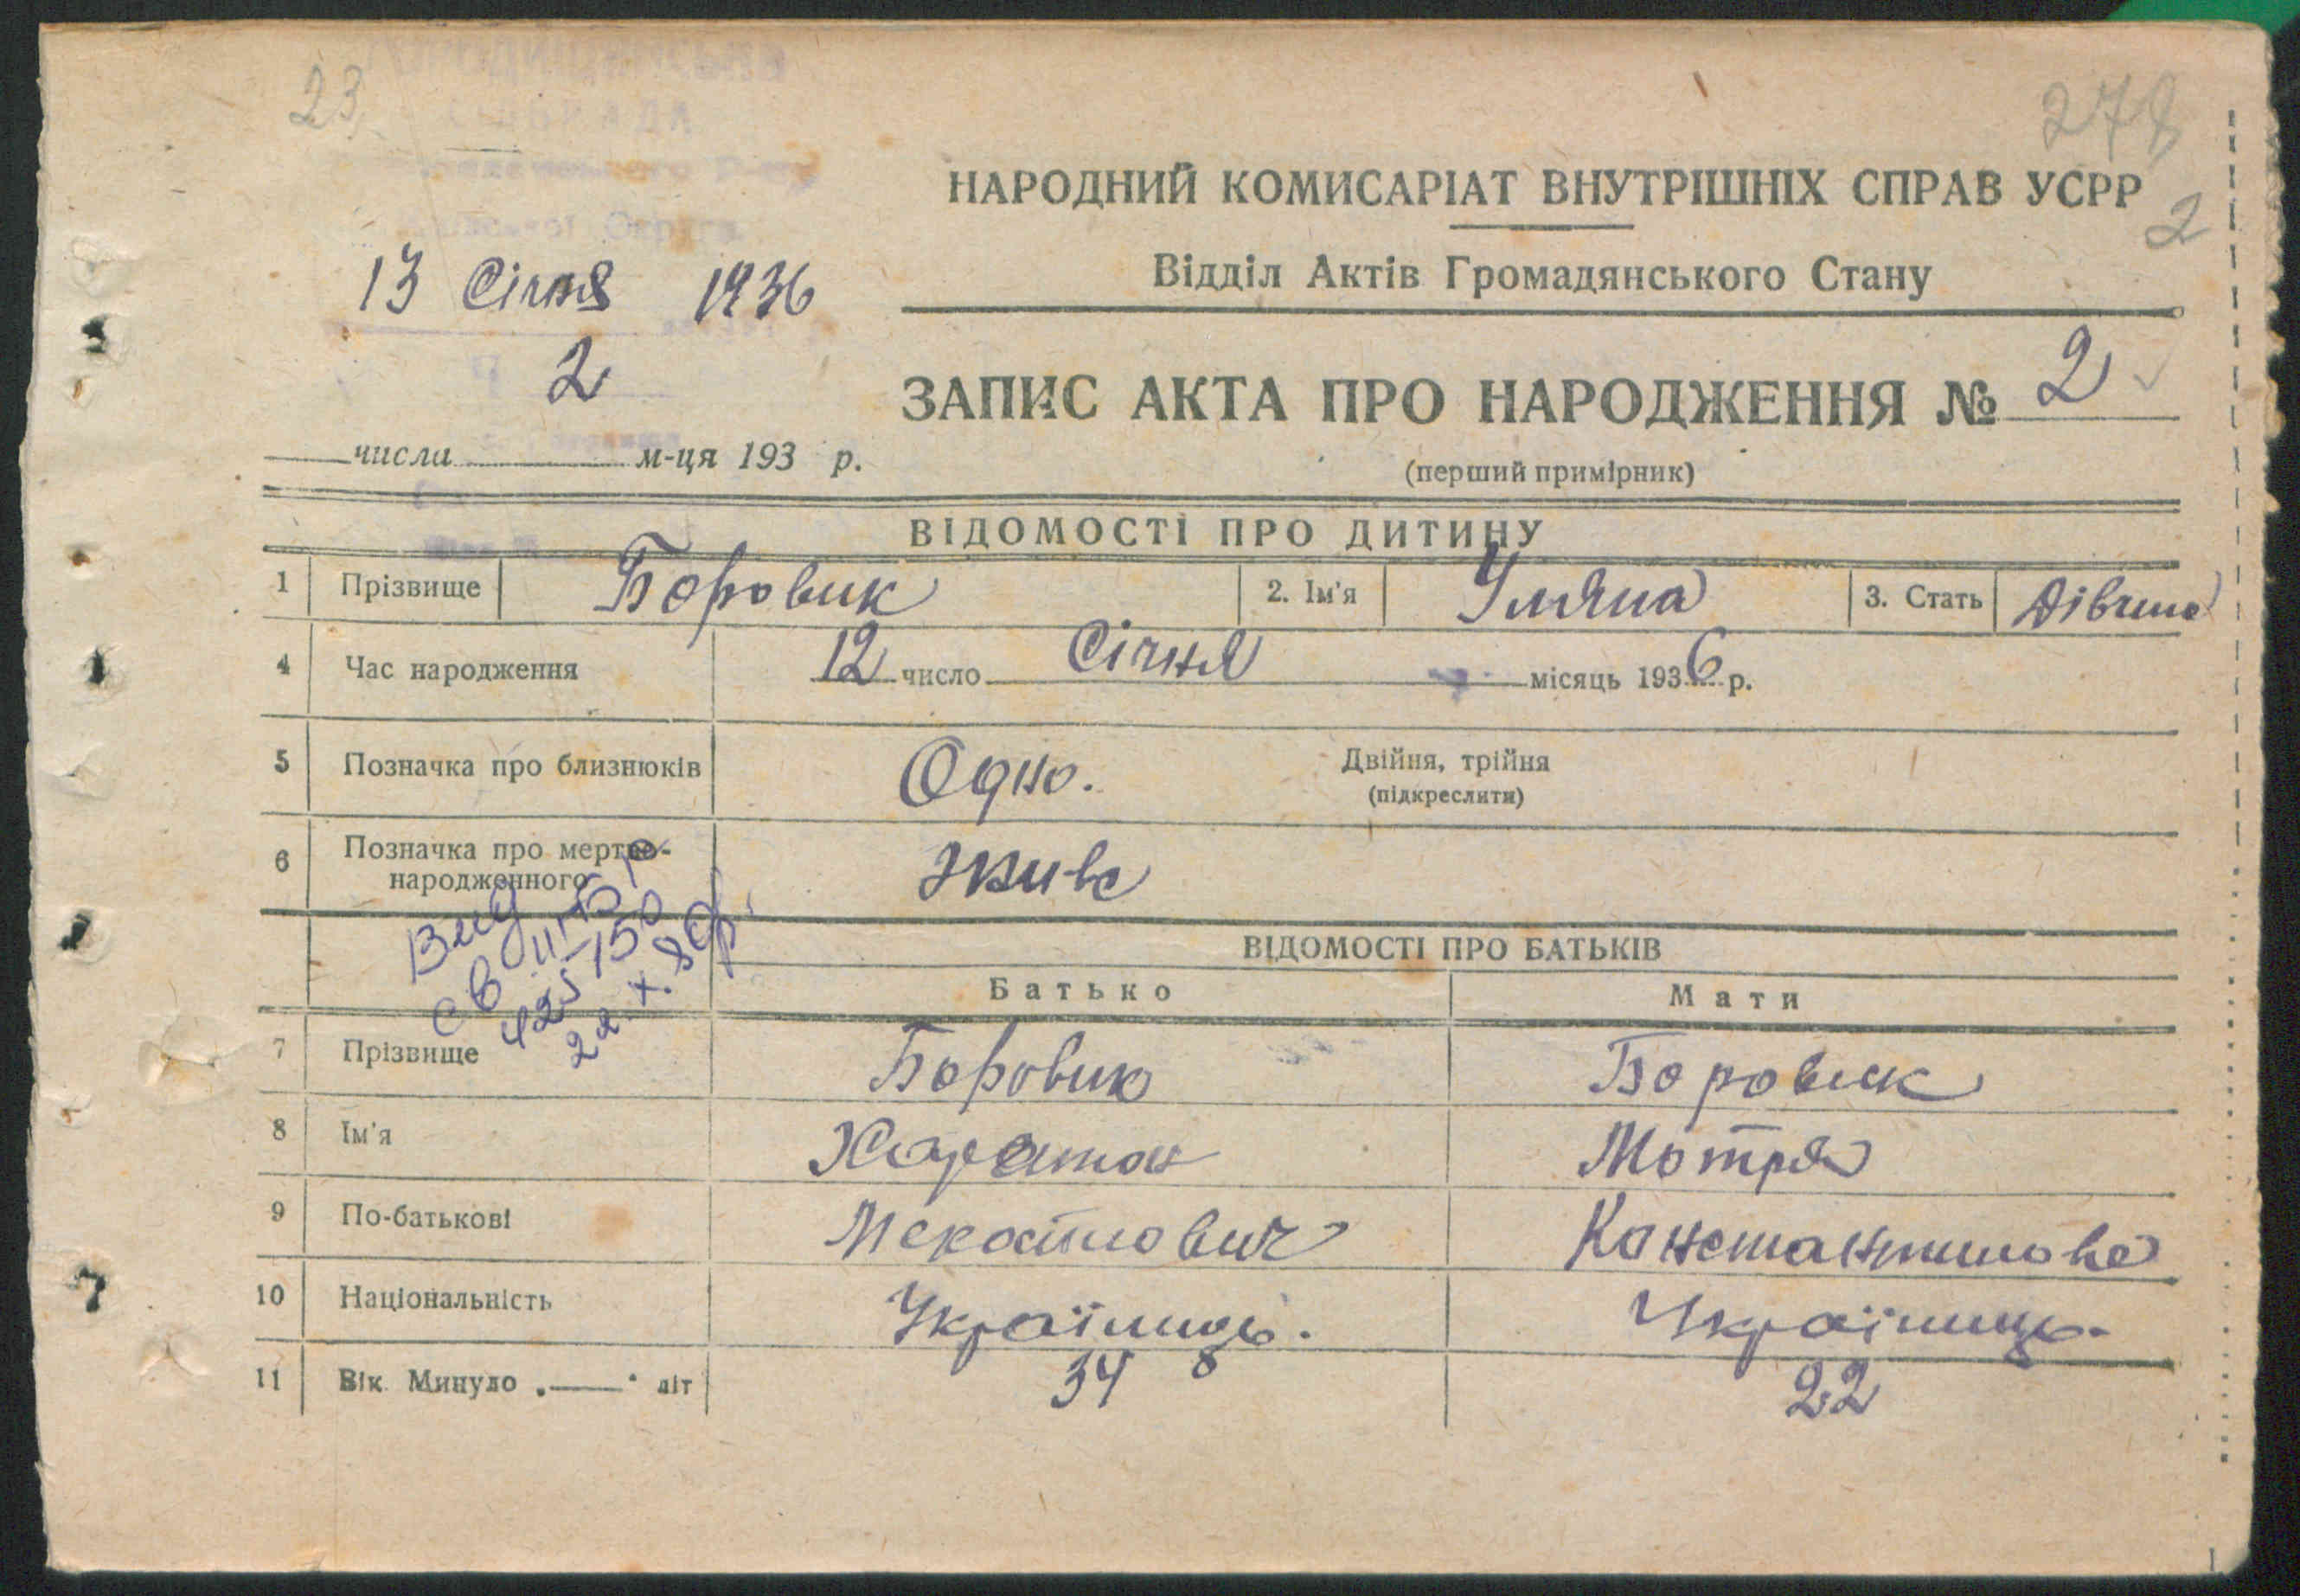 23
278
НАРОДНИЙ КОМИСАРІАТ ВНУТРІШНІХ СПРАВ УСРР
2
Відділ Актів Громадянського Стану
13 Січня 1936
2
ЗАПИС АКТА ПРО НАРОДЖЕННЯ № 2
числа м-ця 193 р.
(перший примірник)
ВІДОМОСТІ ПРО ДИТИНУ
1 Прізвище Боровик 2. Ім'я Уляна 3. Стать Дівчина
4 Час народження 12 число Січня місяць 1936 р.
5 Позначка про близнюків Одно. Двійня, трійня
(підкреслити)
6 Позначка про мертво-
народженного Живе
ВІДОМОСТІ ПРО БАТЬКІВ
Батько Мати
7 Прізвище Боровик Боровик
8 Ім'я Харитон Мотря
9 По-батькові Константинова
10 Національність Українець. Українець
11 Вік Минуло „——“ літ 34 22